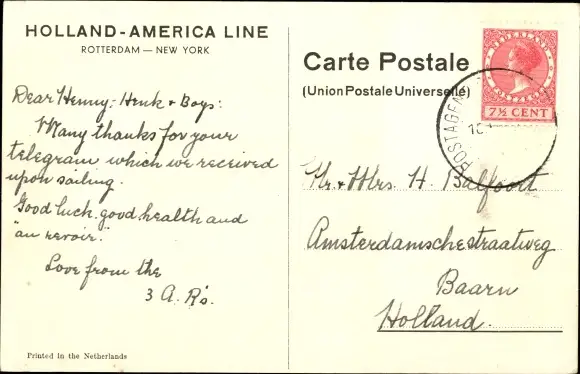 HOLLAND-AMERICA LINE
ROTTERDAM — NEW YORK
Dear Henny, Henk + Boys:
Many thanks for your
telegram which we received
upon sailing.
Good luck, good health and
"au revoir."
Love from the
3 A. R's.
Printed in the Netherlands
Carte Postale
(Union Postale Universelle)
NEDERLAND
POSTZEGEL
7½ CENT
POSTAGEN
Mr. + Mrs. H. Balfoort
Amsterdamschestraatweg
Baarn
Holland.